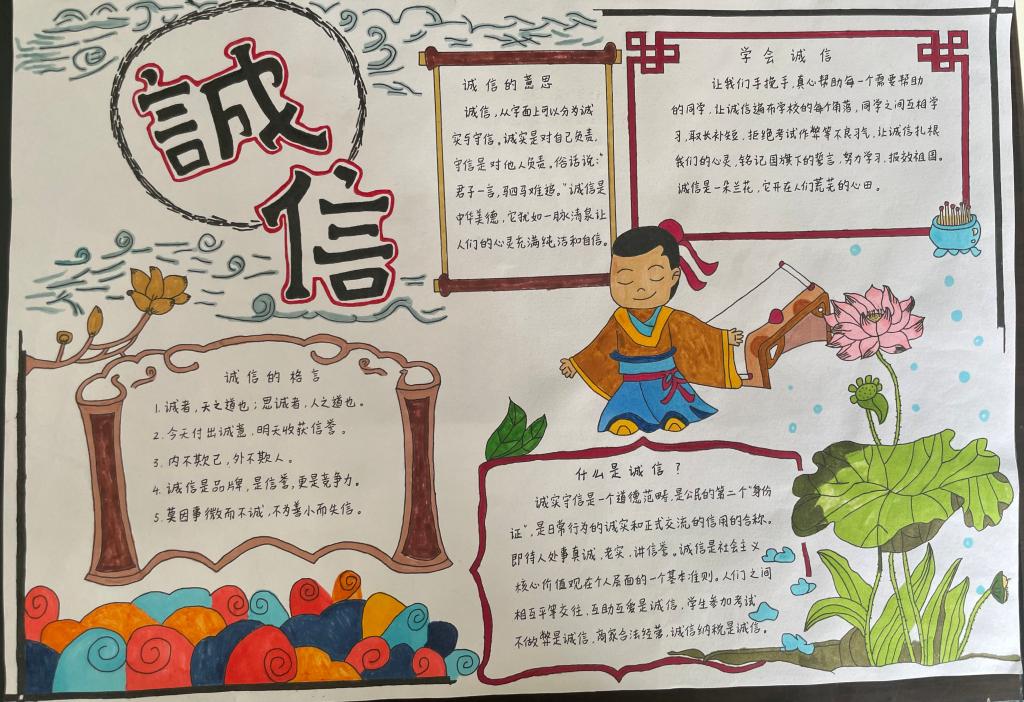 誠信
诚信的意思
诚信,从字面上可以分为诚
实与守信。诚实是对自己负责,
守信是对他人负责。俗话说:“
君子一言,驷马难追。”诚信是
中华美德,它犹如一脉清泉让
人们的心灵充满纯洁和自信。
学会诚信
让我们手挽手,真心帮助每一个需要帮助
的同学,让诚信遍布学校的每个角落,同学之间互相学
习,取长补短,拒绝考试作弊等不良习气,让诚信扎根
我们的心灵,铭记国旗下的誓言,努力学习,报效祖国。
诚信是一朵兰花,它开在人们荒芜的心田。
诚信的格言
1.诚者,天之道也;思诚者,人之道也。
2.今天付出诚意,明天收获信誉。
3.内不欺己,外不欺人。
4.诚信是品牌,是信誉,更是竞争力。
5.莫因事微而不诚,不为善小而失信。
什么是诚信?
诚实守信是一个道德范畴,是公民的第二个“身份
证”,是日常行为的诚实和正式交流的信用的合称。
即待人处事真诚、老实、讲信誉。诚信是社会主义
核心价值观在个人层面的一个基本准则。人们之间
相互平等交往,互助互爱是诚信,学生参加考试
不做弊是诚信,商家合法经营,诚信纳税是诚信。